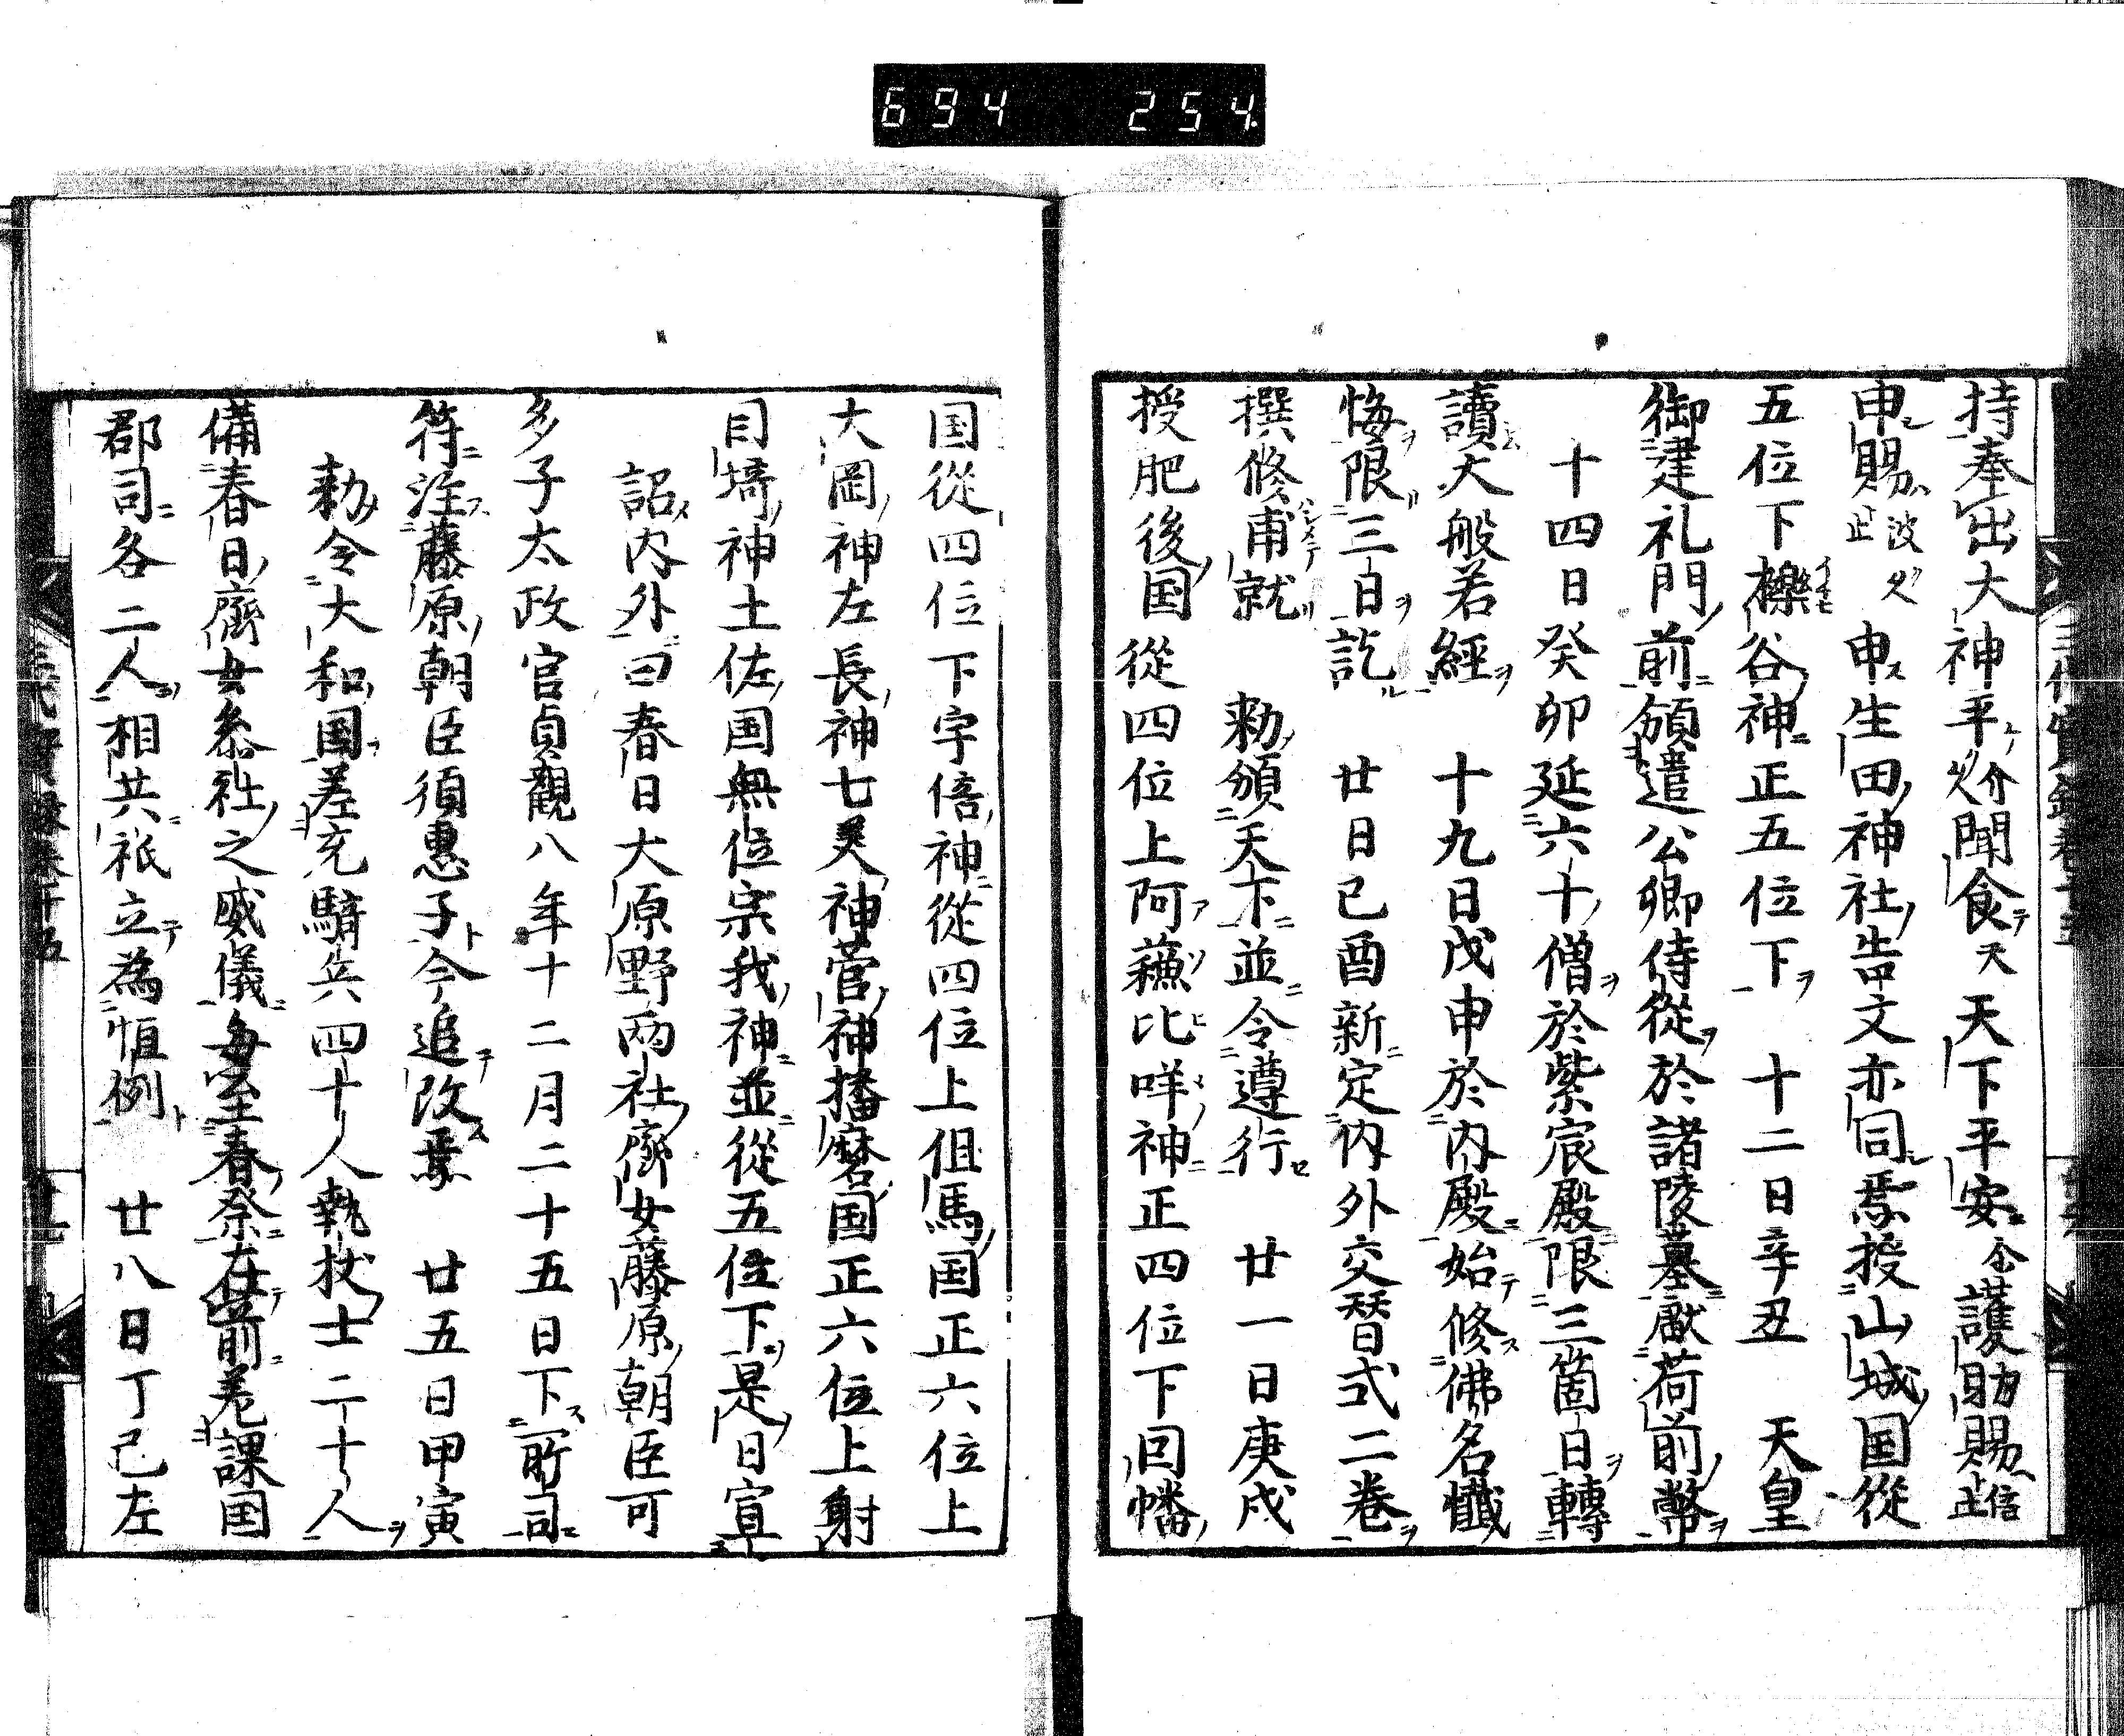 694 254
持奉出大神平介久聞食天天下平安令護助賜信止
申賜波久止申生田神社告文亦同焉授山城国從
五位下櫟谷神正五位下 十二日辛丑 天皇
御建礼門前頒遣公卿侍從於諸陵墓獻荷前幣
十四日癸卯延六十僧於紫宸殿限三箇日轉
讀大般若經 十九日戊申於内殿始修佛名懺
悔限三日訖 廿日己酉新定内外交替式二卷
撰修甫就 勅頒天下並令遵行 廿一日庚戌
授肥後国從四位上阿蘓比咩神正四位下因幡
国從四位下宇倍神從四位上但馬国正六位上
大岡神左長神七美神菅神播磨国正六位上射
目埼神土佐国無位宗我神並從五位下是日宣
詔内外曰春日大原野両社齋女藤原朝臣可
多子太政官貞觀八年十二月二十五日下所司
符注藤原朝臣須惠子今追改焉 廿五日甲寅
勅令大和国差充騎兵四十人執杖士二十人
備春日齋女参社之威儀毎至春祭在前差課国
郡司各二人相共祇立為恒例 廿八日丁巳左